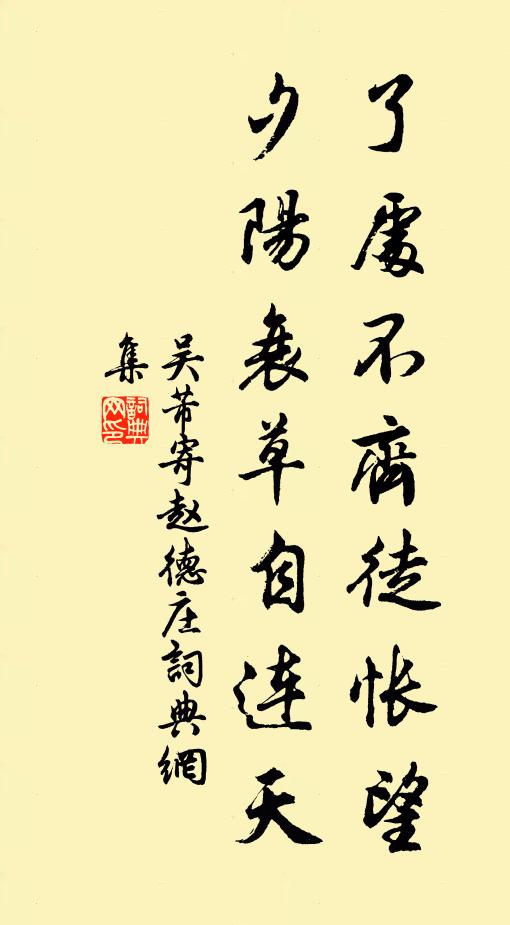 了處不齊徒怅望
夕陽衰草自連天
吴芾寄赵德庄詞典網
集
詞典网印